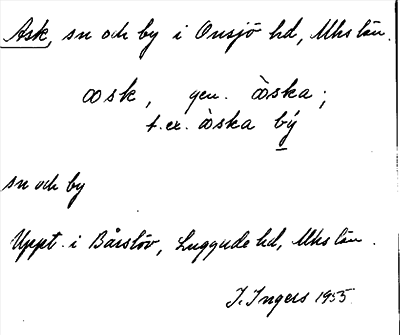 Ask, sn och by i Onsjö hd, Mhs län.
ɑsk, gen. ɑ̀ska;
t.ex. ɑ̀ska bý
sn och by
Uppt. i Bårslöv, Luggude hd, Mhs län.
I. Ingers 1955